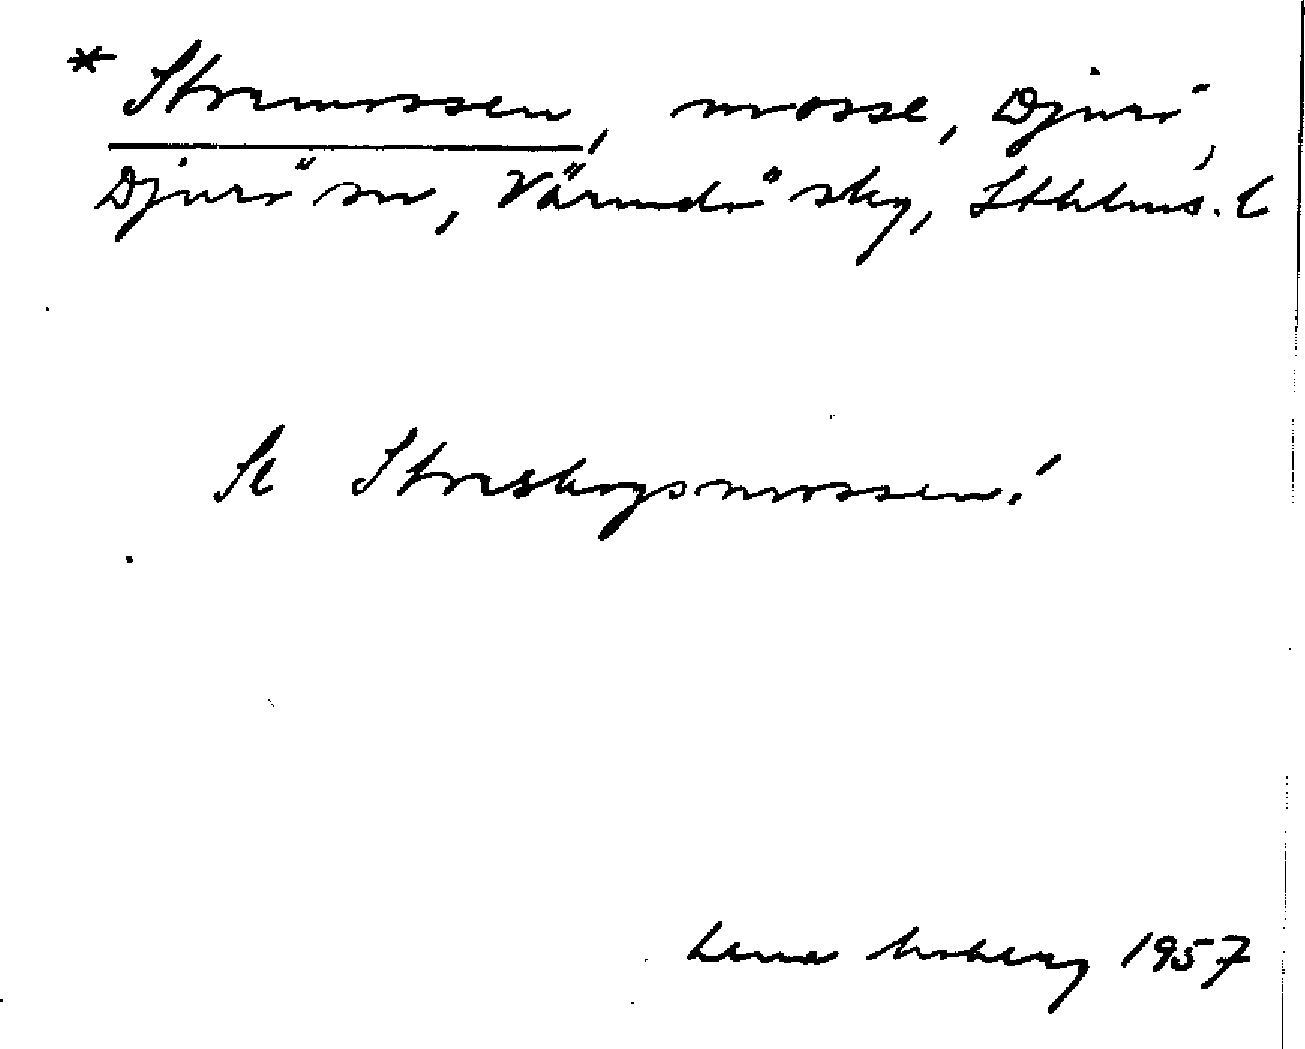 * Stormossen, mosse, Djurö,
Djurö sn, Värmdö sky, Sthlms. l
Se Storskogsmossen!
Lena Moberg 1957